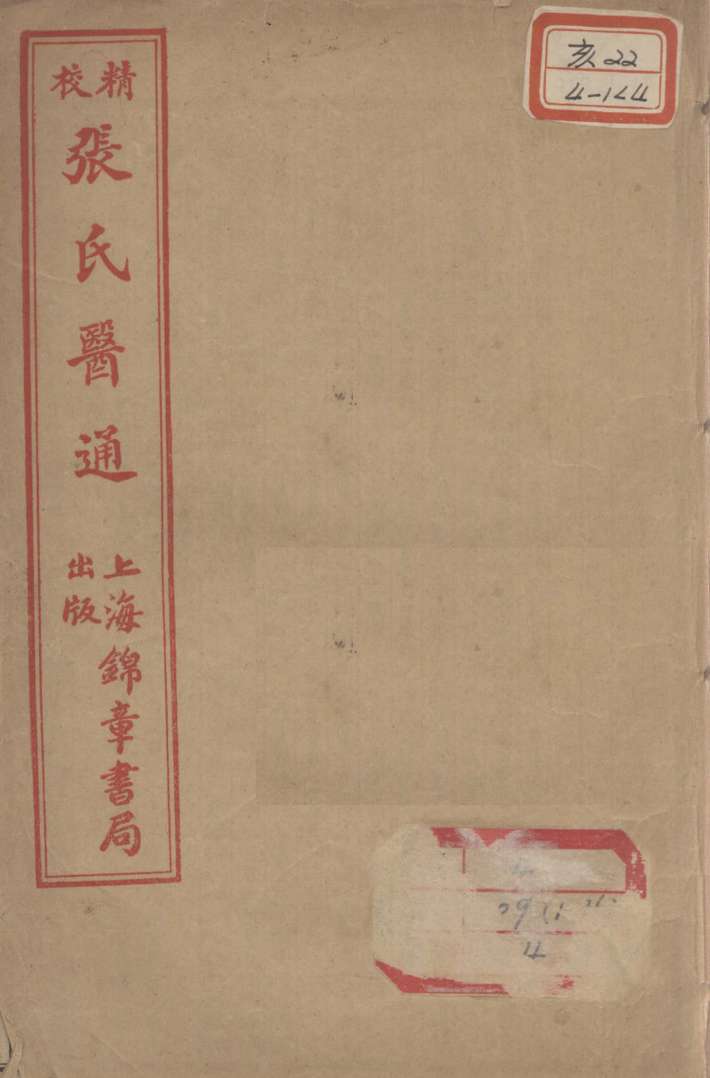 精校
張氏醫通
上海錦章書局
出版
亥22
4-144
4